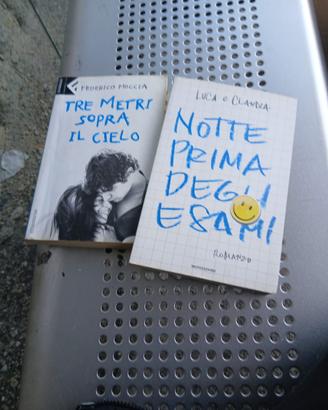 FEDERICO MOCCIA
TRE METRI
SOPRA
IL CIELO
LUCA e CLAUDIA
NOTTE
PRIMA
DEGLI
ESAMI
ROMANZO
MONDADORI